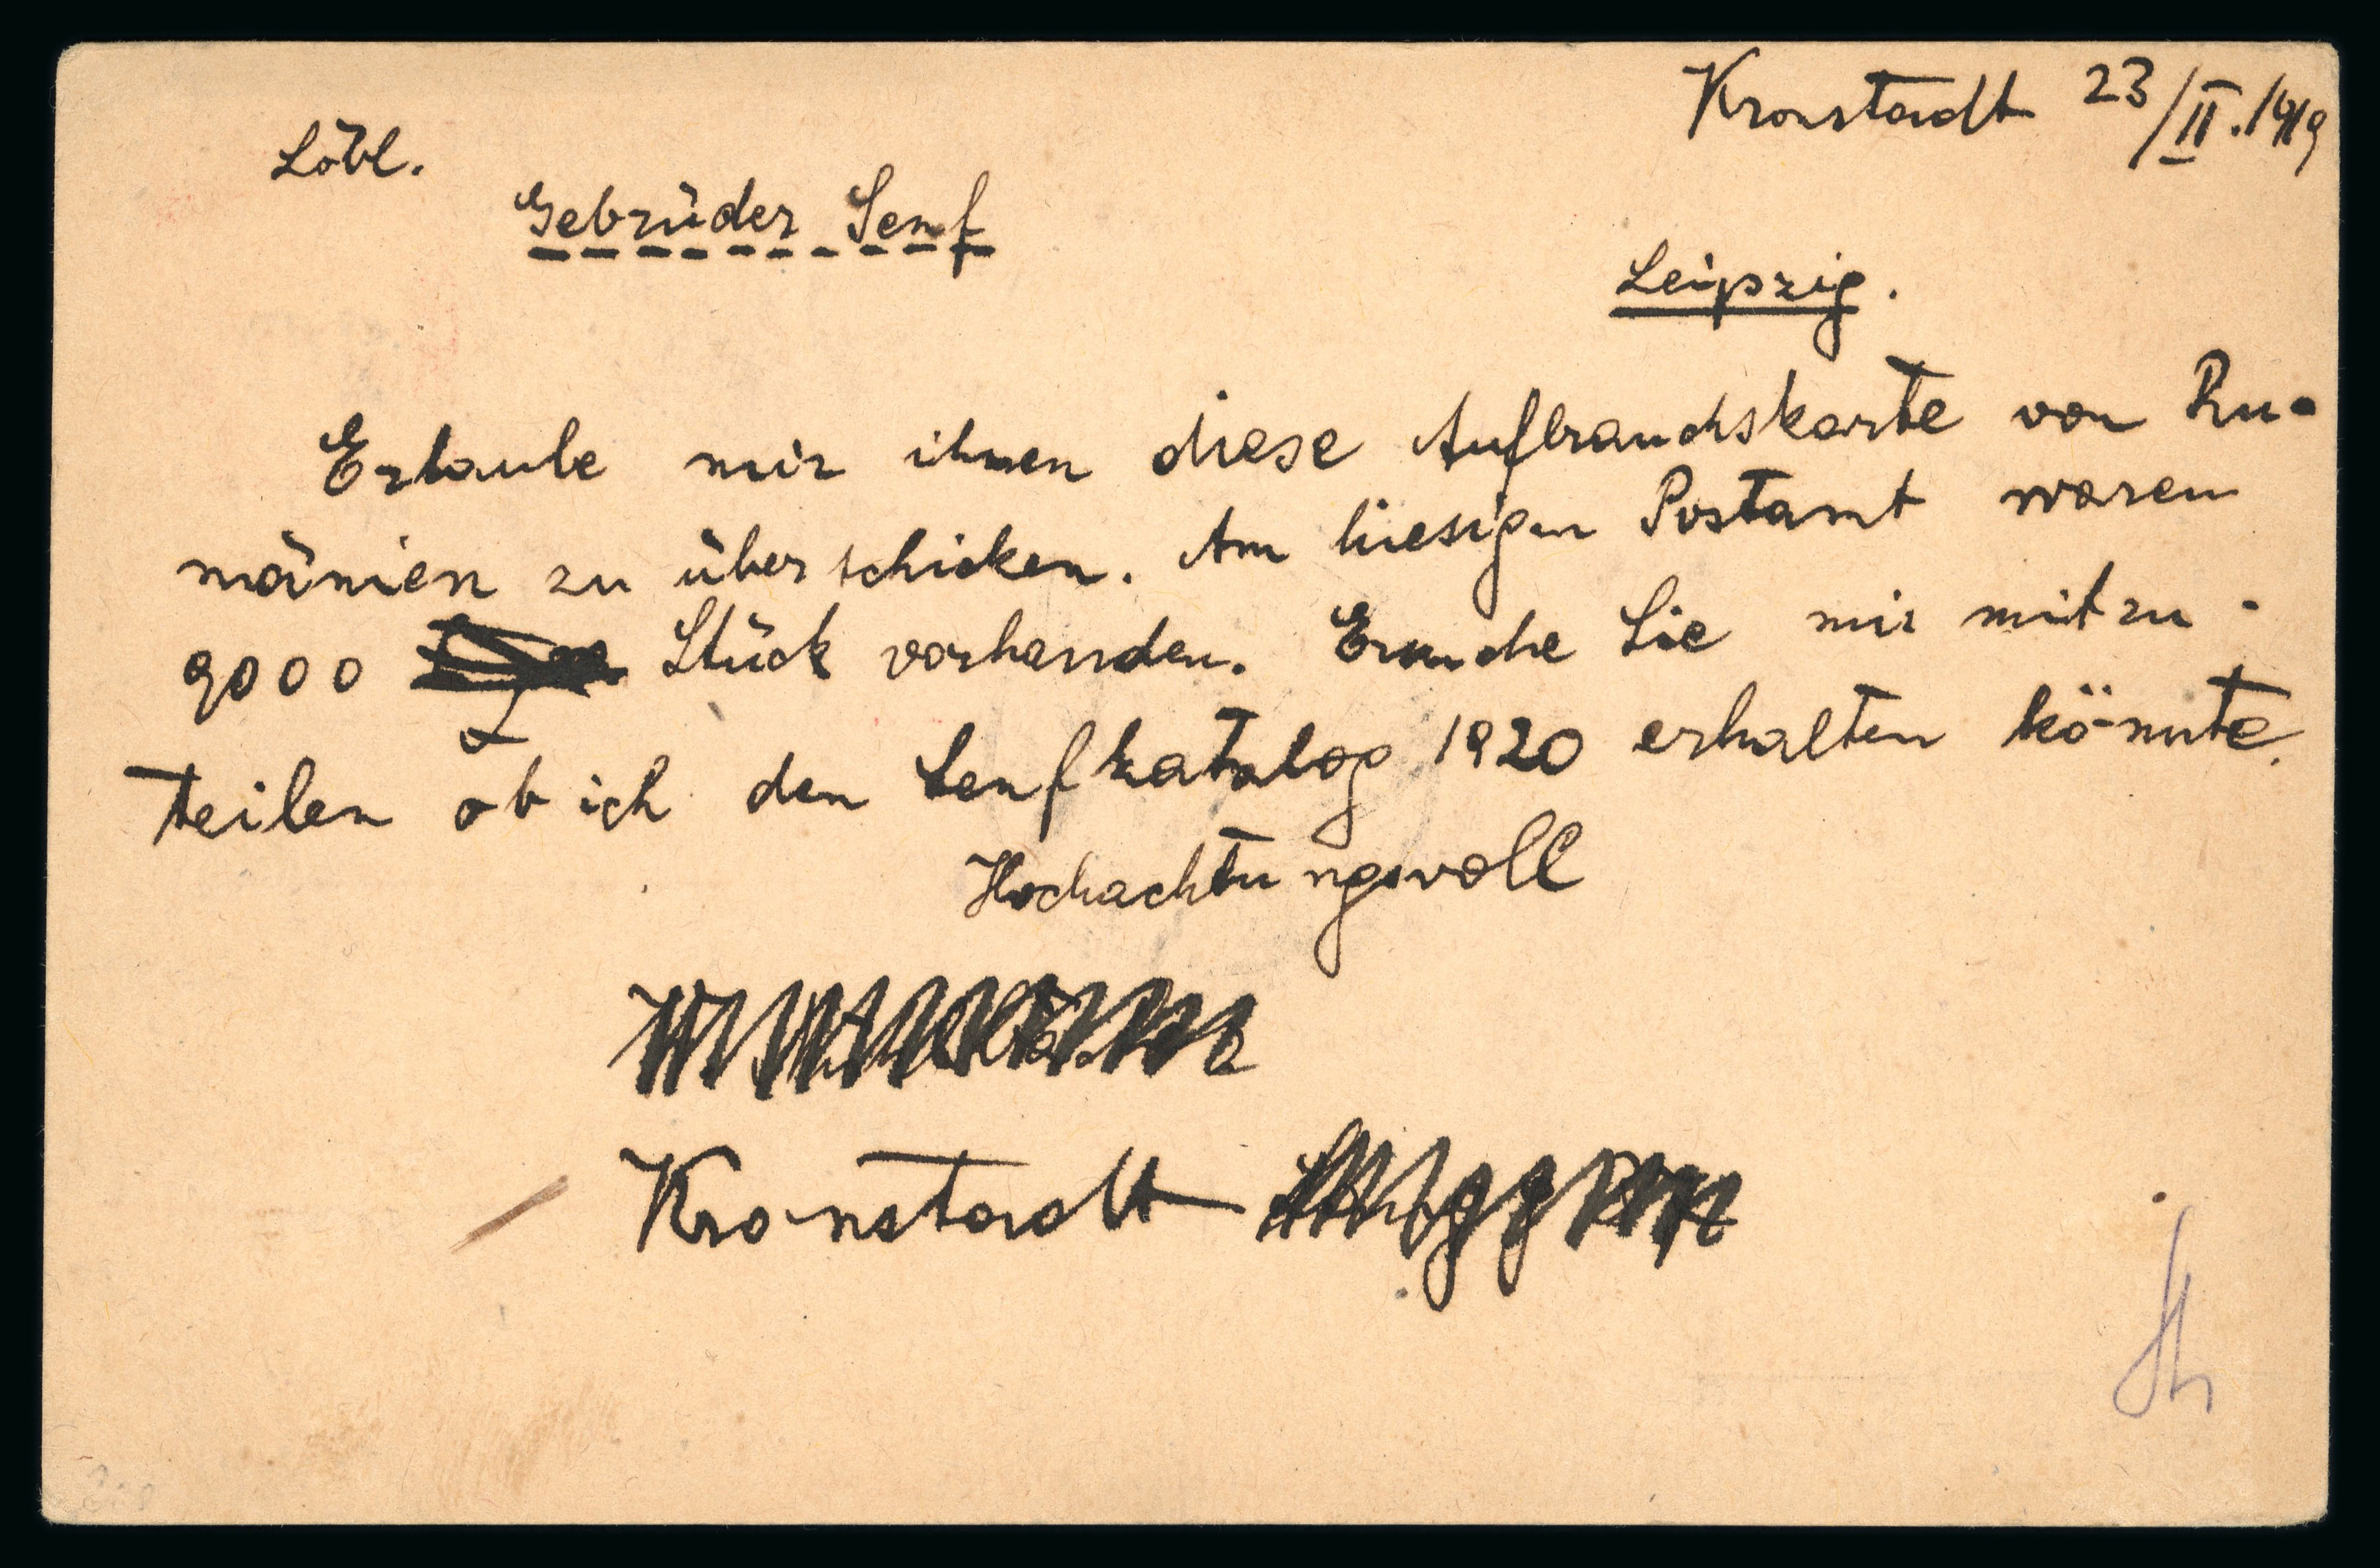 Kronstadt 23/II.1919
Löbl.
Gebrüder Senf
Leipzig.
Erlaube mir ihnen diese Aufbrauchskarte von Ru-
mänien zu überschicken. Am hiesigen Postamt waren
9000 Stück vorhanden. Ersuche Sie mir mitzu-
teilen ob ich den Senfkatalog 1920 erhalten könnte.
Hochachtungsvoll
Kronstadt